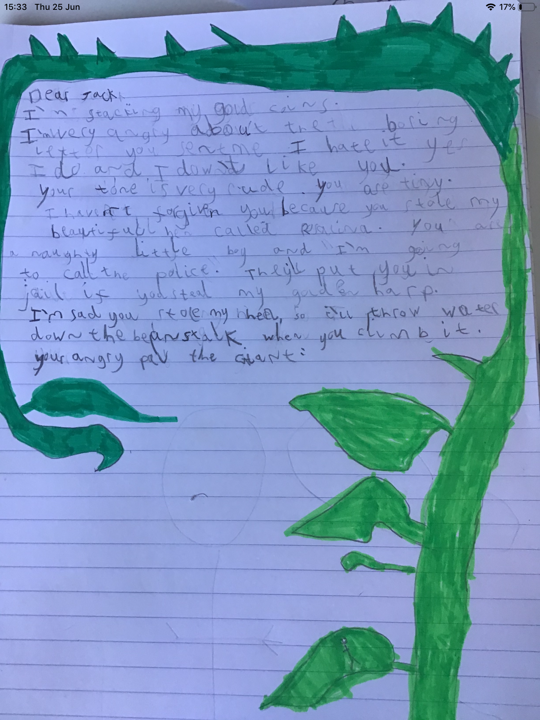 15:33 Thu 25 Jun
17%
Dear Jack
I'm stacking my goul coins.
I'm very angry about the boring
letter you sent me I hate it yes
I do and I down't like you.
your tone is very rude. you are tiny.
I haven't forgiven you because you stole my
beautifull hen called You are
a naughty little boy and I'm going
to call the police. They'll put you in
jail if you steal my golden harp.
I'm sad you stole my hen, so I'll throw water
down the beanstalk when you climb it.
your angry pal the Giant: